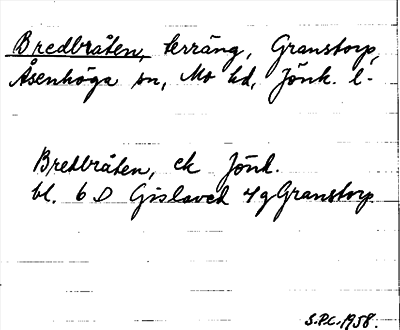 Bredbråten, terräng, Granstorp,
Åsenhöga sn, Mo hd, Jönk. l.
Bredbråten, ek Jönk.
bl. 6 D Gislaved 4g Granstorp
S.P.C. 1958.